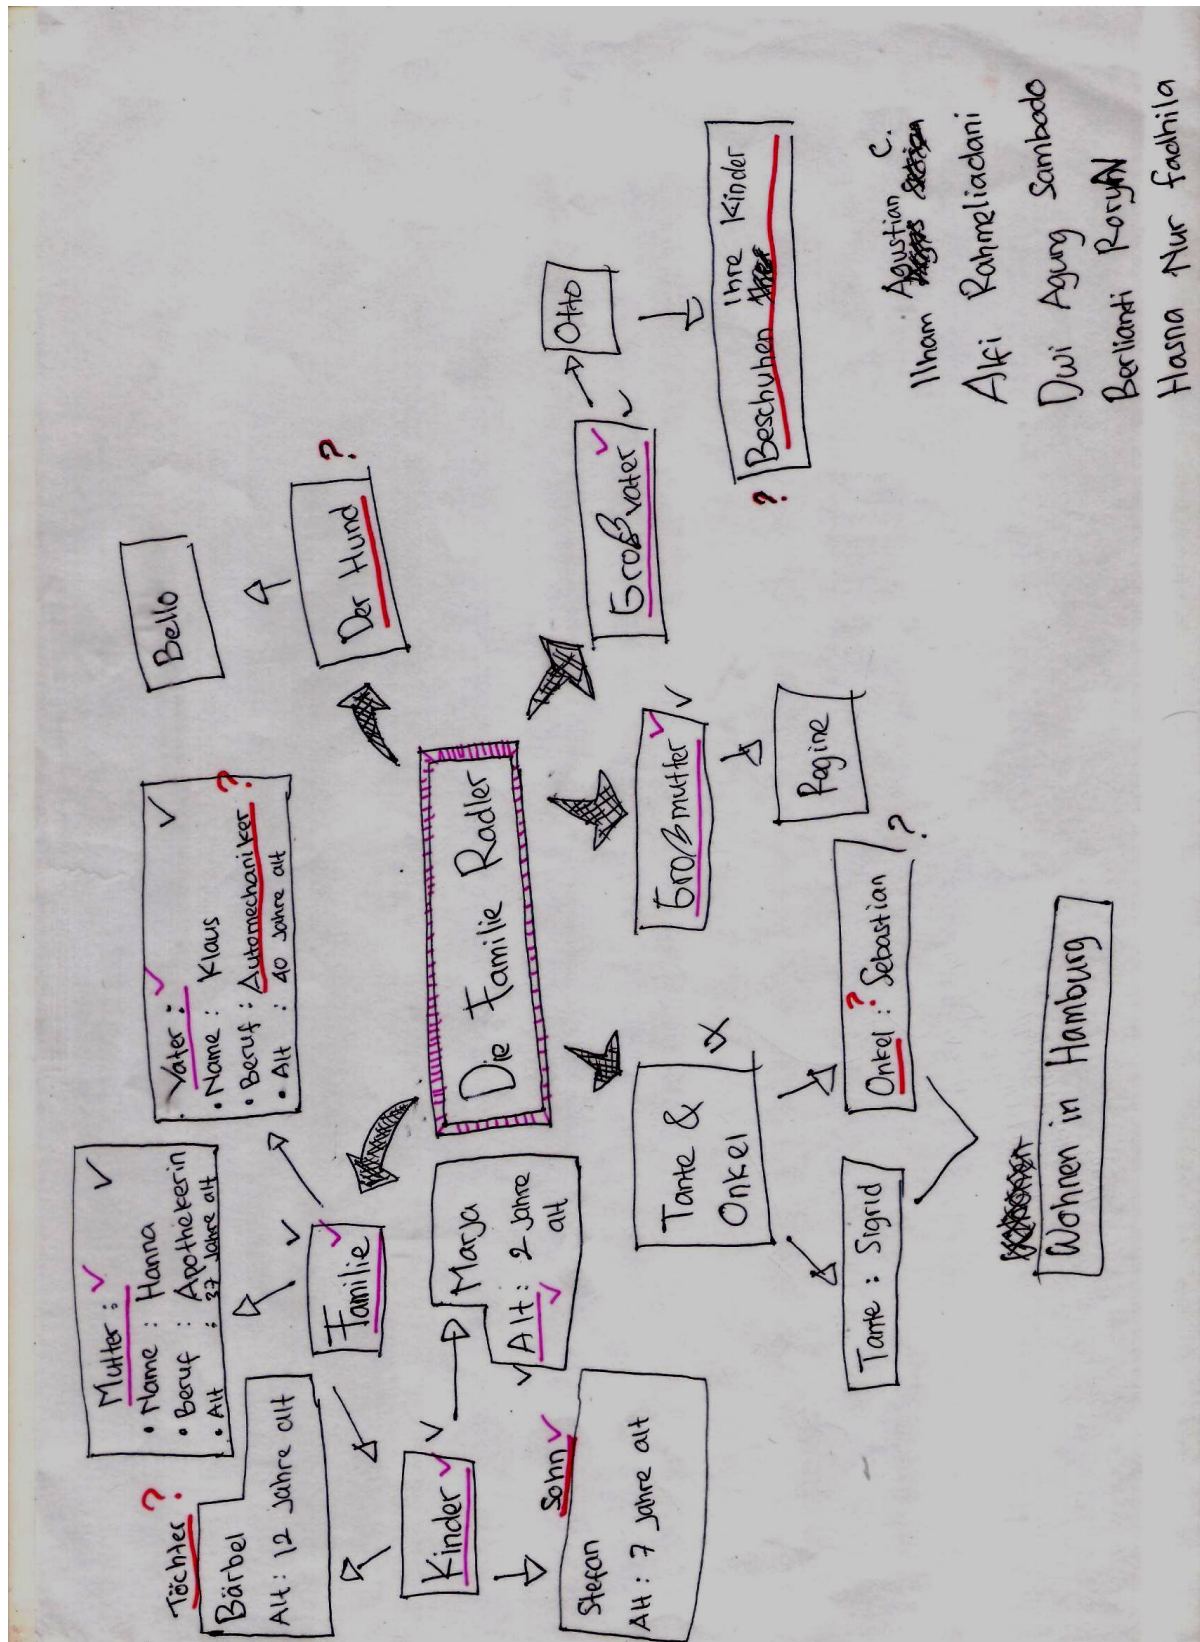 Die Familie Radler
Familie
Mutter :
• Name : Hanna
• Beruf : Apothekerin
• Alt : 37 Jahre alt
Vater :
• Name : Klaus
• Beruf : Automechaniker ?
• Alt : 40 Jahre alt
Kinder
Töchter ?
Bärbel
Alt : 12 Jahre alt
Marja
Alt : 2 Jahre
alt
Sohn
Stefan
Alt : 7 Jahre alt
Der Hund ?
Bello
Großvater
Otto
? Beschuhen Ihre Kinder
Großmutter
Ragine
Tante &
Onkel
Tante : Sigrid
Onkel : ? Sebastian ?
Wohnen in Hamburg
Ilham Agustian C.
Alfi Rahmeliadani
Dwi Agung Sambodo
Berlianti
Hasna Nur Fadhila